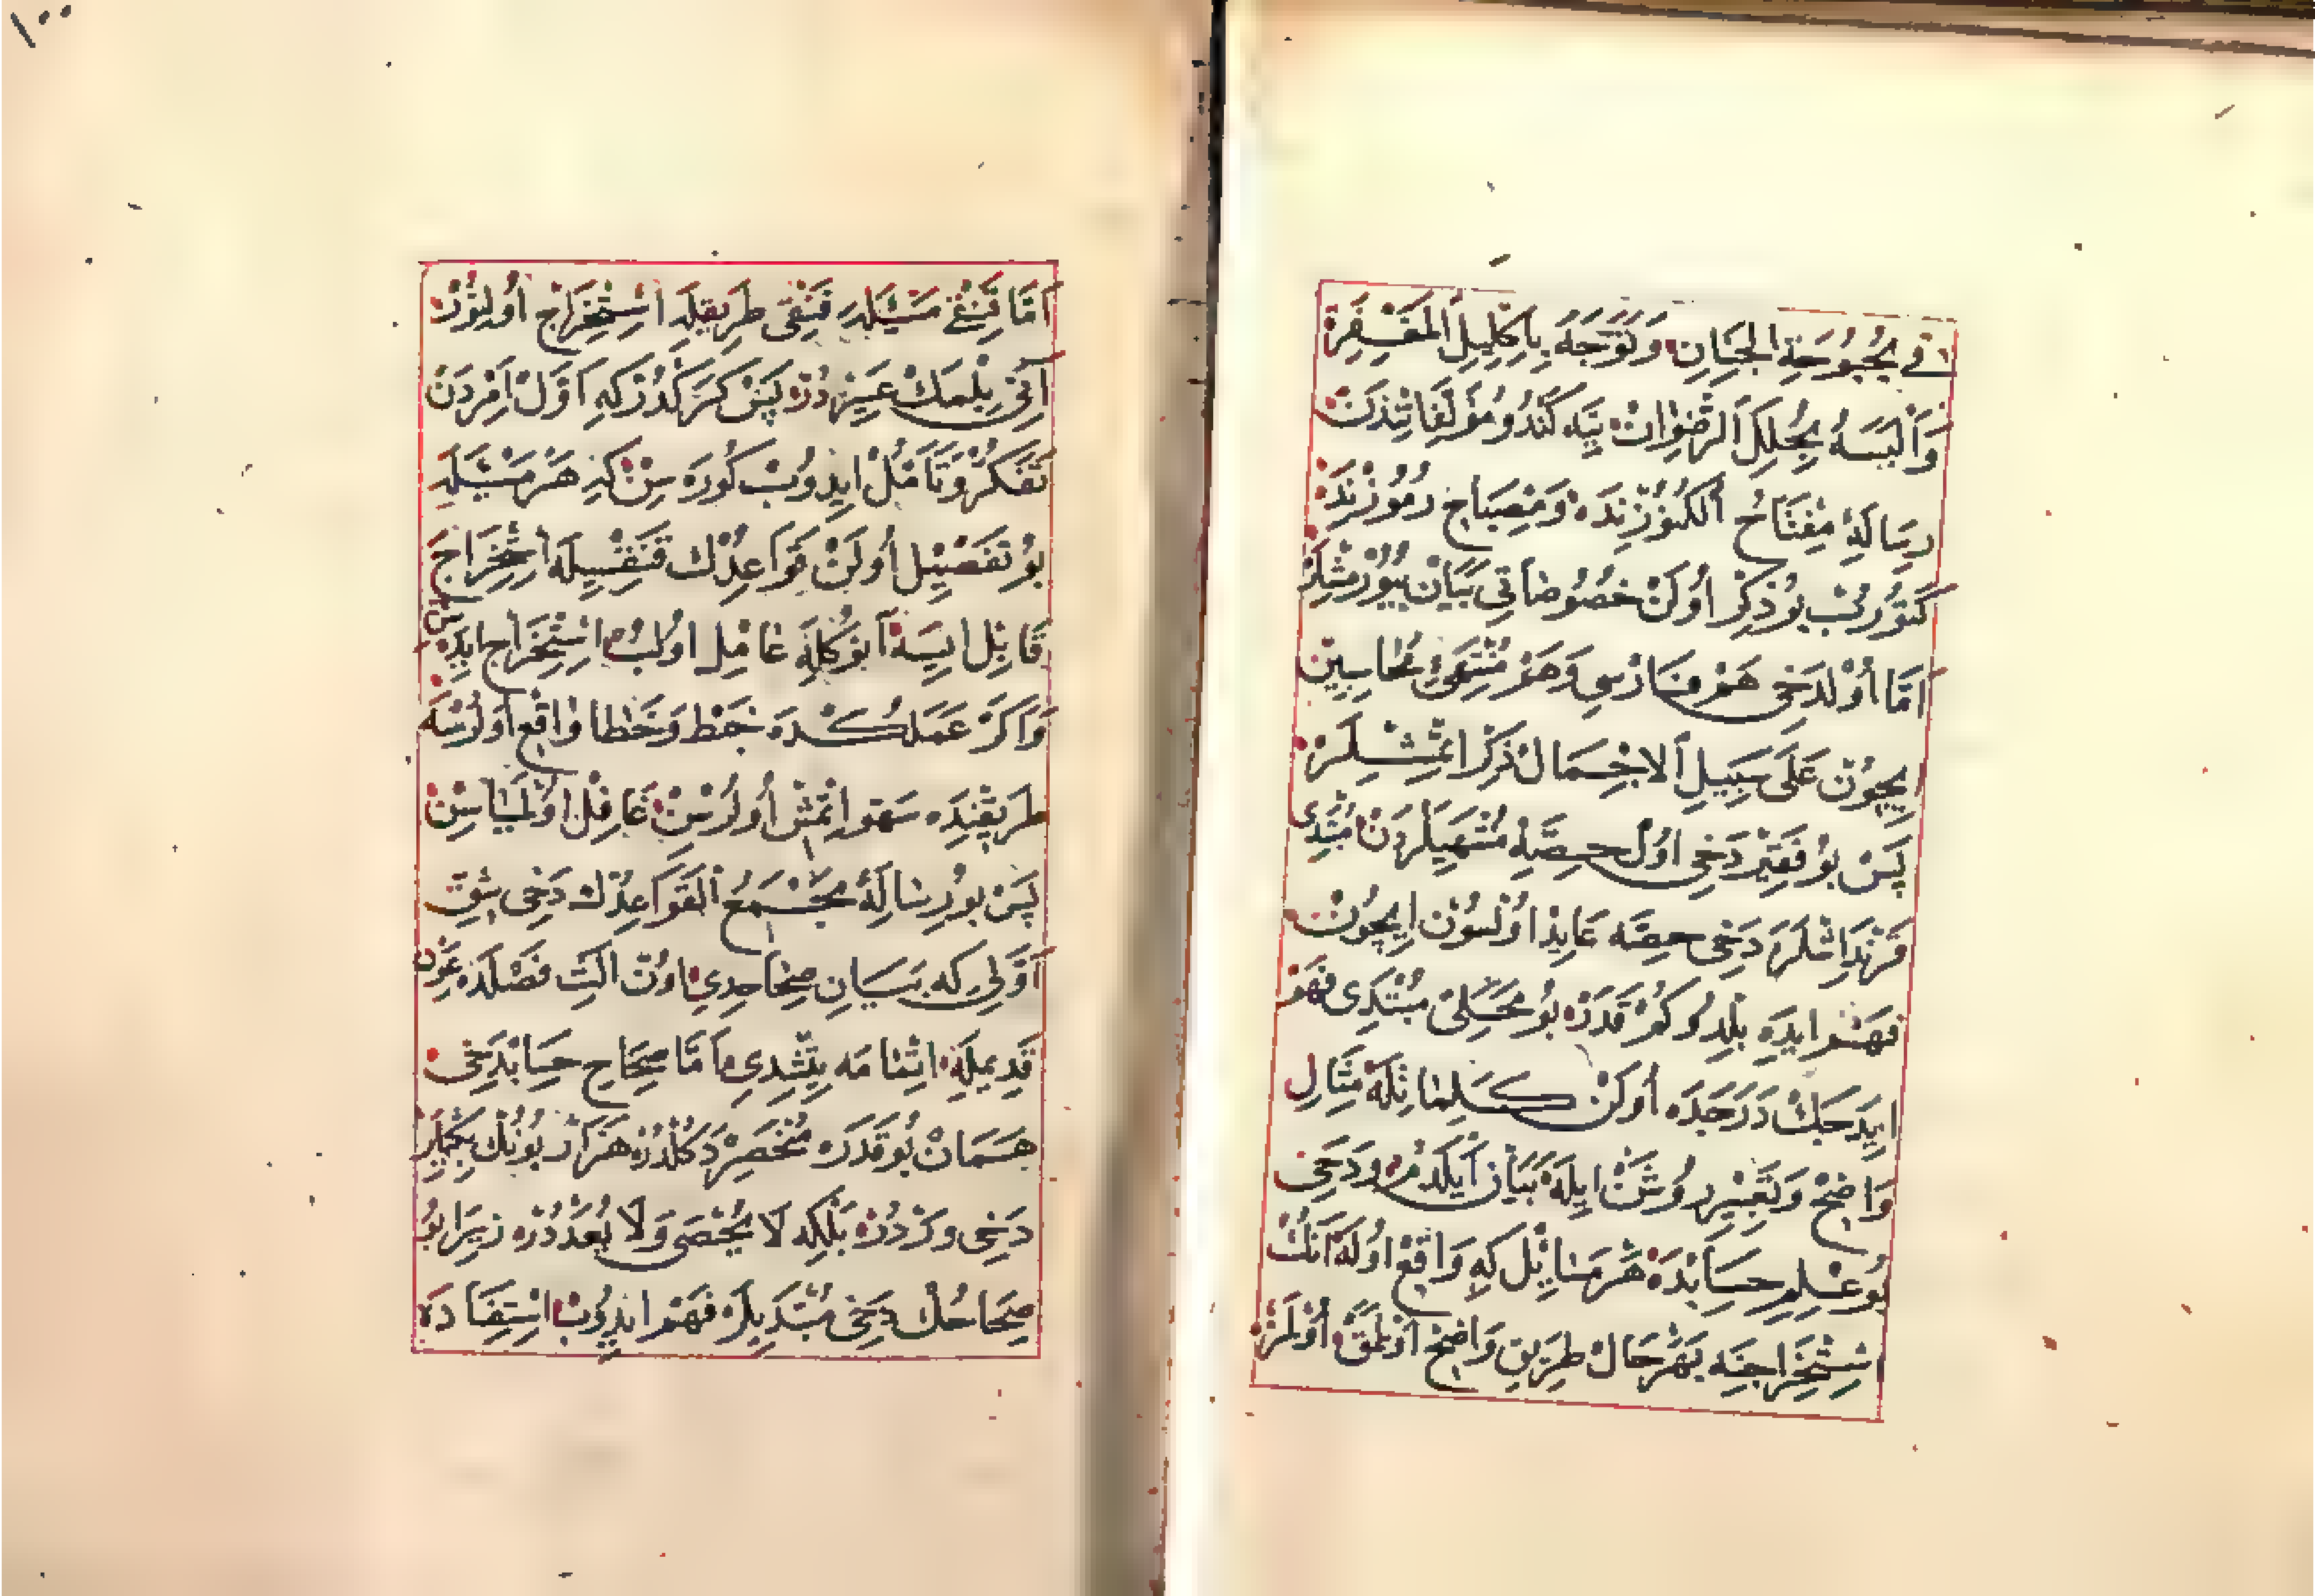 في بُحْبُوحَةِ الجَنانِ وَتَوَّجَهُ بِاِكْلِيلِ الْمَغْفِرَةِ
وَاَلْبَسَهُ بِحُلَلِ الرِّضْوَانْ ينه كَنْدُو مُؤَلَّفَاتِنْدَنْ
رِسَالَۀِ مِفْتَاحُ الْكُنُوزِنْدَه وَمِصْبَاحِ رُمُوزِنْدَه
كَتُورُبْ بُو ذِكْرْ اُولَنْ خُصُوصَاتِي بَيَانْ بُيُورْمِشْلَرْ
اَمَّا اُولْدَخِي هَمْ فَارْسِي وَهَمْ مُنْتَهِيِ مُحَاسِبِينْ
اِيچُونْ عَلَى سَبِيلِ الاِجْمَالْ ذِكْرْ اِتْمِشْلَرْ
پَسْ بُو فَقِيرْ دَخِي اُولْ حِصَّۀِ مُنْتَهِيلَرْدَنْ مُبْتَدِي
قَرَنْدَاشْلَرَه دَخِي حِصَّه عَايِدْ اُولْسُونْ اِيچُونْ
فَهْم ايدَه بِلْدُوكُمْ قَدَرْ بُو مَحَلِّي مُبْتَدِي فَهْم
ايدَجَكْ دَرَجَدَه اُولَنْ كَلِمَاتِلَه مِثَالِ
وَاضِحْ وَتَعْبِيرِ رُوشَنْ اِيلَه بَيَانْ اَيْلَدُمْ وَدَخِي
بُو عِلْمِ حِسَابْدَه هَرْ مَسَائِلْ كِه وَاقِعْ اُولَه اَنُكْ
اِسْتِخْرَاجِنَه بَهَرْحَالْ طَرِيقِ وَاضِحْ اُولْمَقْ اُولْمَزْ
اَمَّا قَنْغِي مَسْئَلَه قَنْغِي طَرِيقْلَه اِسْتِخْرَاجْ اُولُنُورْ
آنِي بِلْمَكْ عَسِيرْدُرْ پَسْ كَرَكْدُرْ كِه اَوَّلْ اَمِرْدَنْ
تَفَكُّرْ وَتَأَمُّلْ ايدُوبْ كُورَه سِنْ كِه هَرْ مَسْئَلَه
بُو تَفْصِيلْ اُولَنْ قَوَاعِدُكْ قَنْغِيسِيلَه اِسْتِخْرَاجَه
قَابِلْ ايسَه اَنُوكْلَه عَامِلْ اولُبْ اِسْتِخْرَاجْ ايدَه سِنْ
وَاَكَرْ عَمَلُكْدَه خَبْط وَخَطَا وَاقِعْ اُولُرْسَه
طَرِيقِنْدَه سَهْو اِتْمِشْ اُولُرْسِنْ غَافِلْ اُولْمَيَاسِنْ
پَسْ بُو رِسَالَۀِ مَجْمَعُ الْقَوَاعِدُكْ دَخِي شِقِّ
اَوَّلِي كِه بَيَانِ صِحَاحِدِي اون الت فَصْلْدَه عَوْنِ
قَدِيمِلَه اِتْمَامَه يِتِشْدِي اَمَّا صِحَاحِ حِسَابْدَخِي
هَمَانْ بُو قَدَرَه مُنْحَصِرْ دَكُلْدُرْ هَزَارْ بُونُكْ بِكِيلَرْ
دَخِي وَرْدُرْ بَلْكِه لَا يُحْصَى وَلَا يُعَدْدُرْ زِيرَا بُو
صِحَاحُكْ دَخِي مُبْتَدِيلَرْ فَهْم ايدُوبْ اِسْتِفَادَه
١٠٠